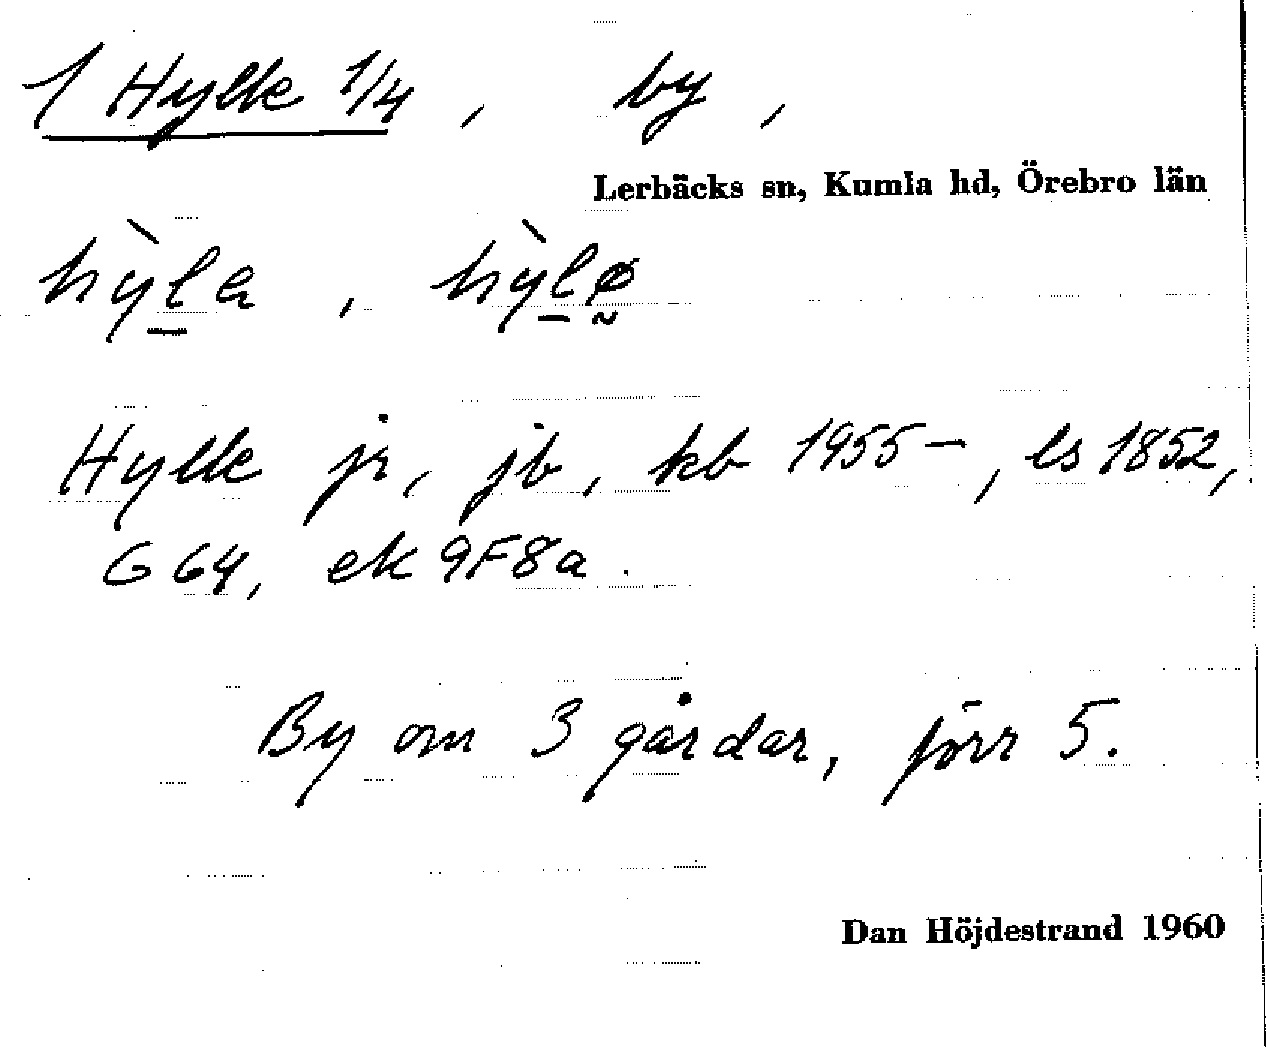 1 Hylle 1/4, by,
Lerbäcks sn, Kumla hd, Örebro län
hỳla, hỳlø
Hylle jr, jb, kb 1955–, ls 1852,
G 64, ek 9F8a.
By om 3 gårdar, förr 5.
Dan Höjdestrand 1960